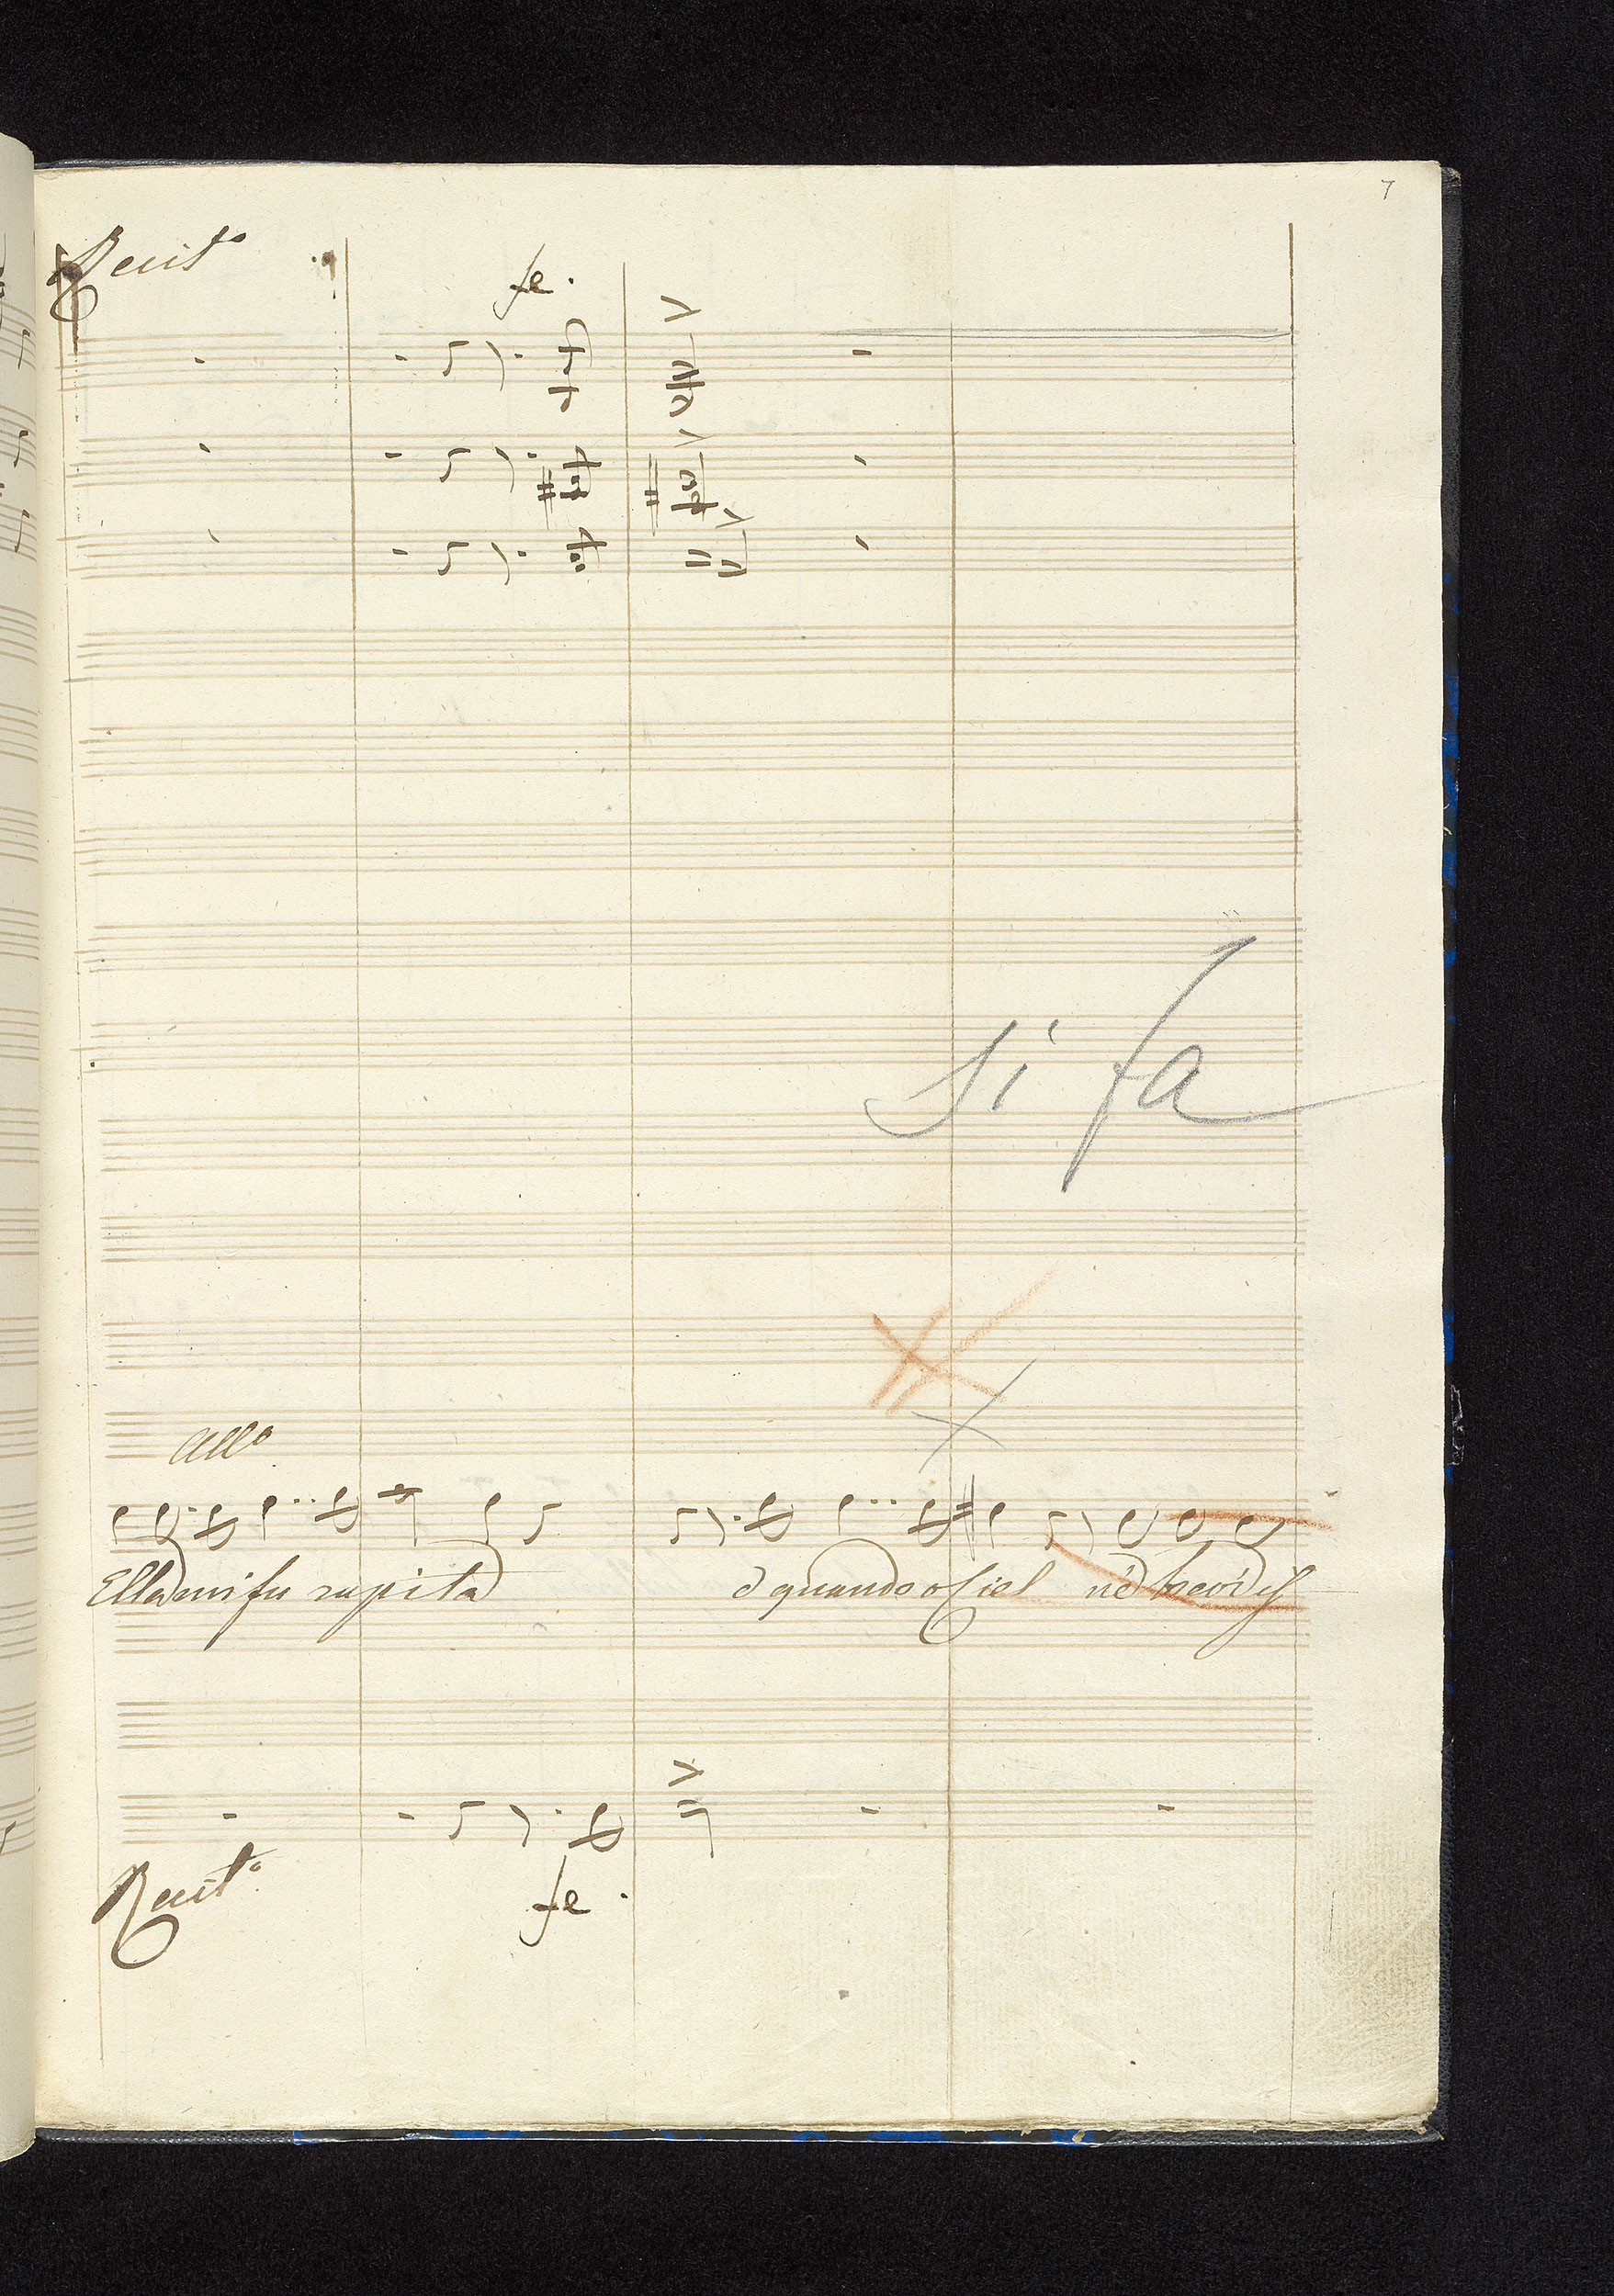 7
Recit.o
fe.
si fa
All.o
Ella mi fu rapita e quando o Ciel ne' brevi is
Recit.o
fe.